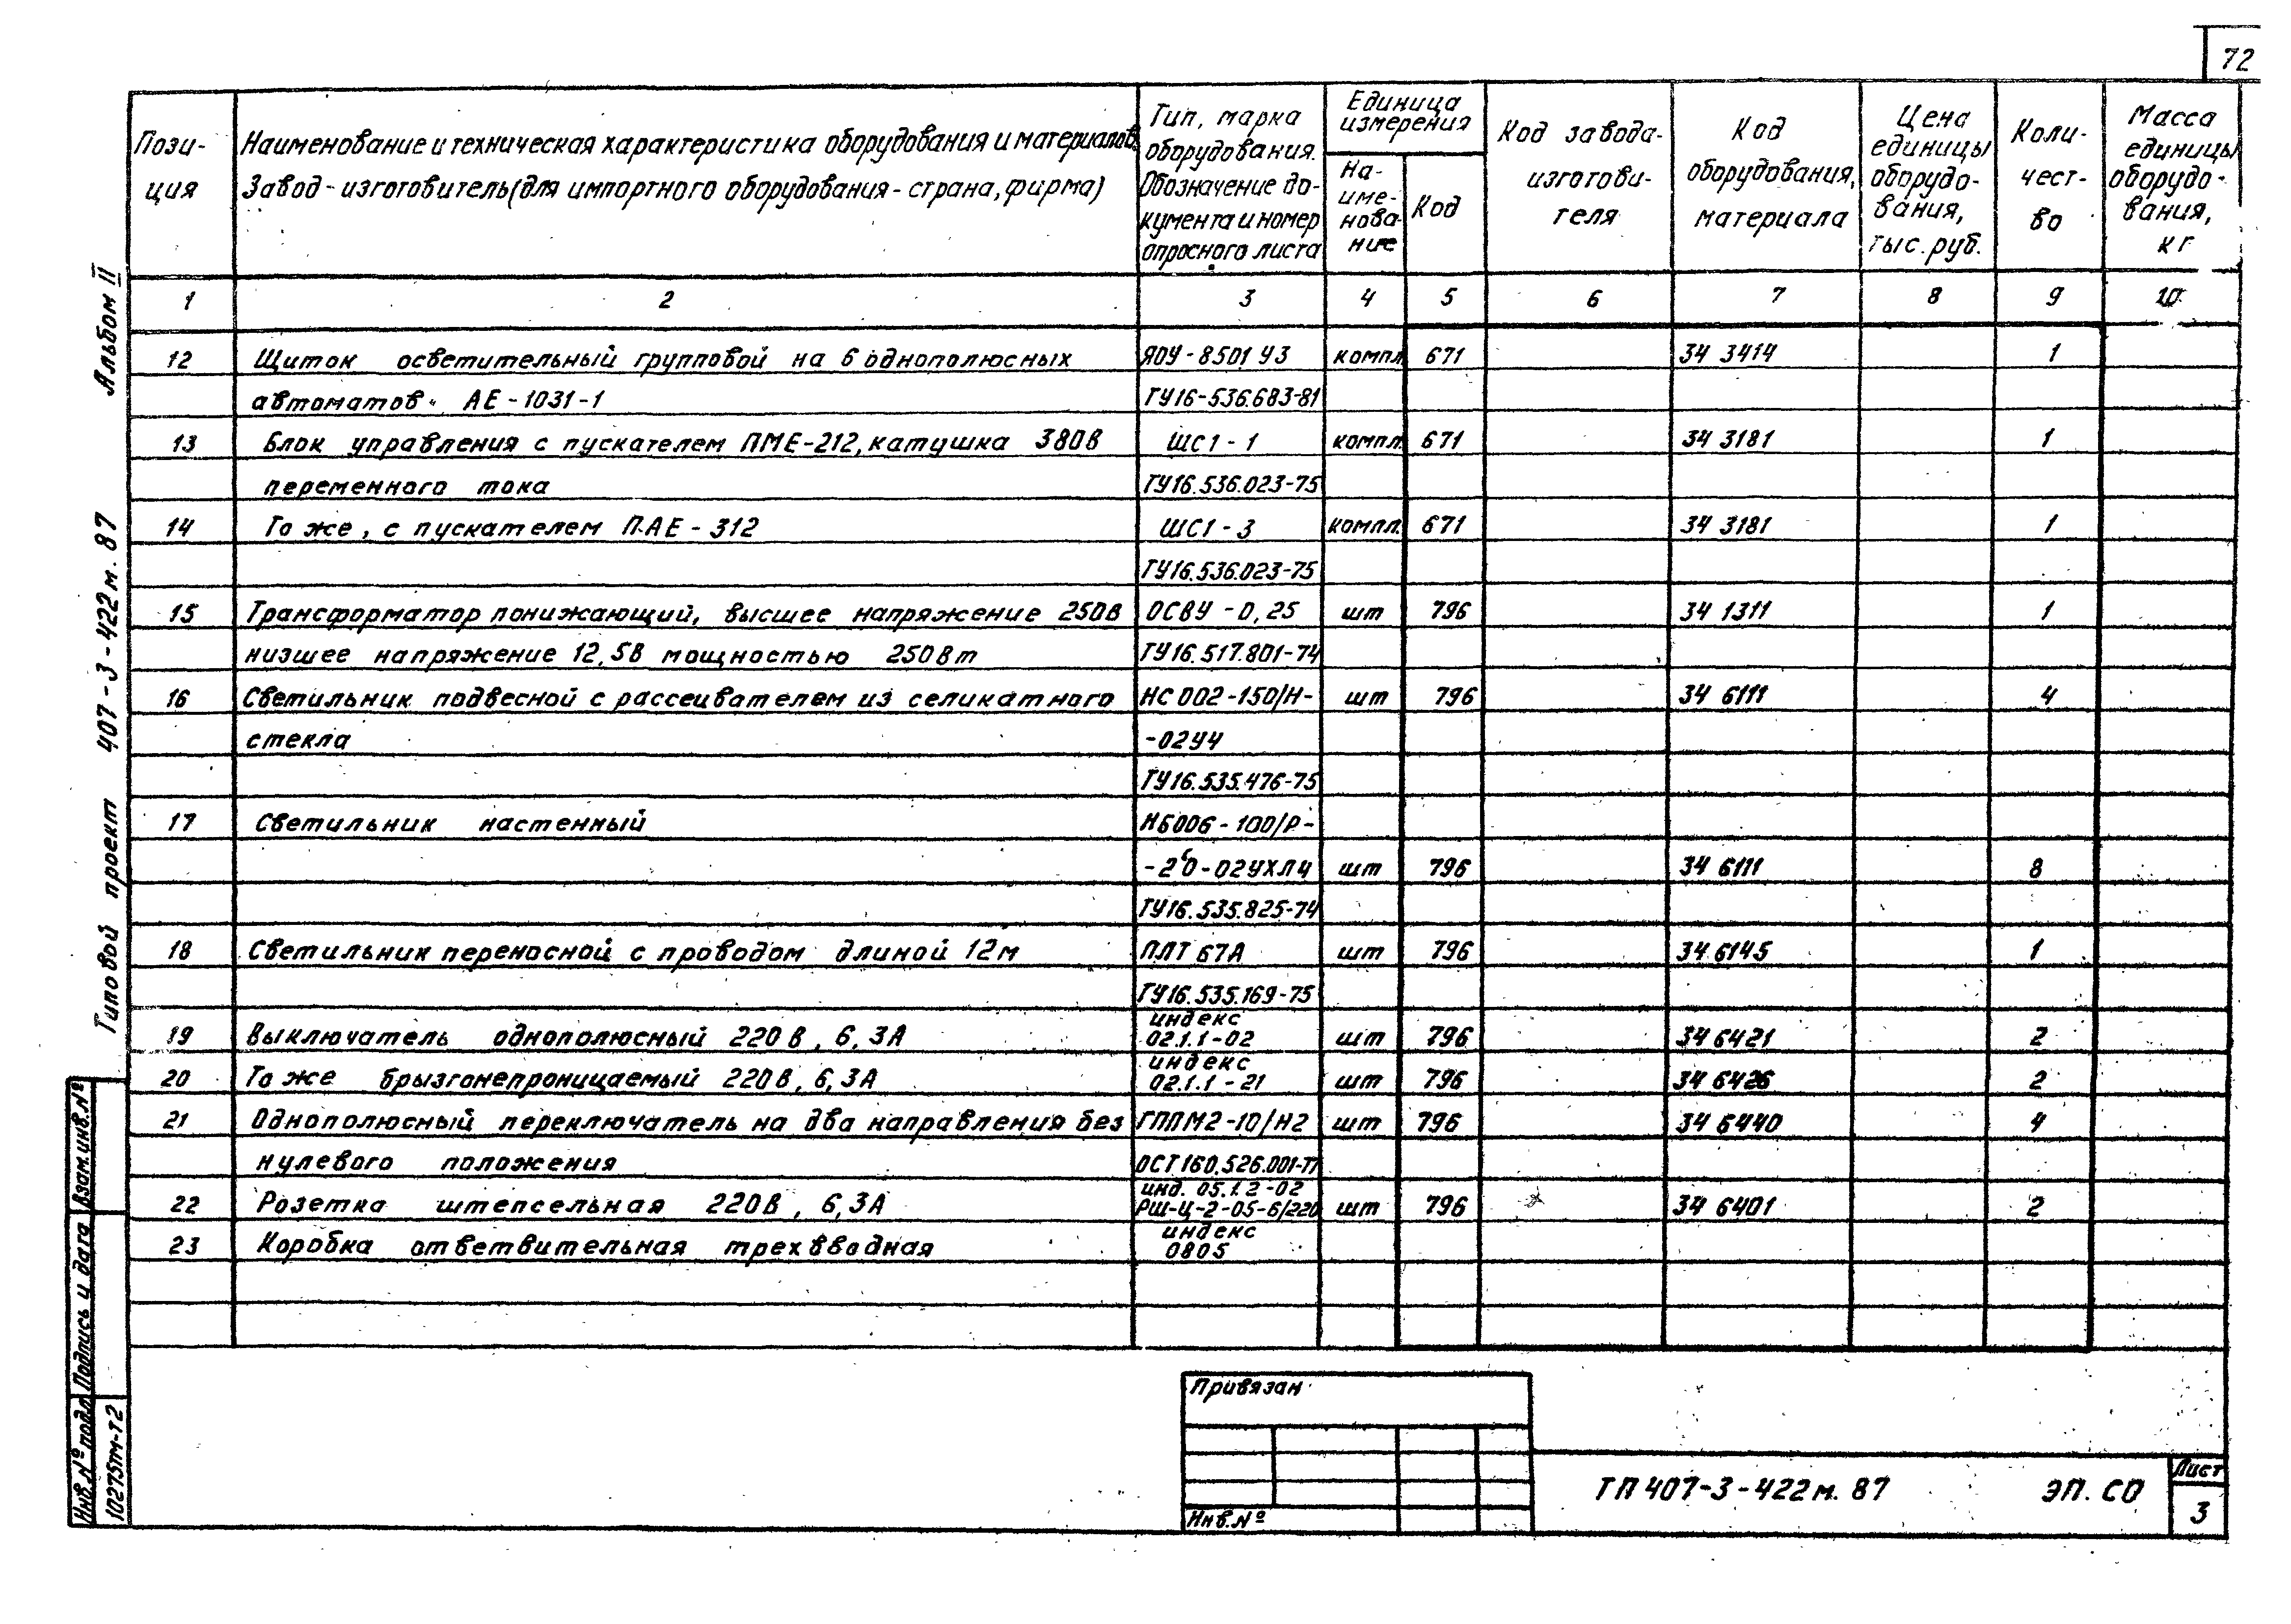 72
Пози-
ция
Наименование и техническая характеристика оборудования и материалов.
Завод-изготовитель (для импортного оборудования - страна, фирма)
Тип, марка
оборудования.
Обозначение до-
кумента и номер
опросного листа
Единица
измерения
На-
име-
нова-
ние
Код
Код завода-
изготови-
теля
Код
оборудования,
материала
Цена
единицы
оборудо-
вания,
тыс. руб.
Коли-
чест-
во
Масса
единицы
оборудо-
вания,
кг
1 2 3 4 5 6 7 8 9 10
12 Щиток осветительный групповой на 6 однополюсных ЯОУ-8501 У3 компл. 671 34 3414 1
автоматов АЕ-1031-1 ТУ16-536.683-81
13 Блок управления с пускателем ПМЕ-212, катушка 380В ШС1-1 компл. 671 34 3181 1
переменного тока ТУ16.536.023-75
14 То же, с пускателем ПАЕ-312 ШС1-3 компл. 671 34 3181 1
ТУ16.536.023-75
15 Трансформатор понижающий, высшее напряжение 250В ОСВУ-0,25 шт 796 34 1311 1
низшее напряжение 12,5В мощностью 250Вт ТУ16.517.801-74
16 Светильник подвесной с рассеивателем из селикатного НС 002-150/Н- шт 796 34 6111 4
стекла -02У4
ТУ16.535.476-75
17 Светильник настенный НБ006-100/Р-
-2'0-02УХЛ4 шт 796 34 6111 8
ТУ16.535.825-74
18 Светильник переносной с проводом длиной 12м ПЛТ 67А шт 796 34 6145 1
ТУ16.535.169-75
19 Выключатель однополюсный 220В, 6,3А индекс 02.1.1-02 шт 796 34 6421 2
20 То же брызгонепроницаемый 220В, 6,3А индекс 02.1.1-21 шт 796 34 6426 2
21 Однополюсный переключатель на два направления без ГППМ2-10/Н2 шт 796 34 6440 4
нулевого положения ОСТ160.526.001-77
22 Розетка штепсельная 220В, 6,3А инд. 05.1.2-02 РШ-Ц-2-05-6/220 шт 796 34 6401 2
23 Коробка ответвительная трехвводная индекс 0805
Альбом II
Типовой проект 407-3-422м.87
Взам.инв.№
Подпись и дата
Инв.№ подл.
10275тм-т2
Привязан
Инв.№
ТП 407-3-422м.87 ЭП.СО
Лист
3